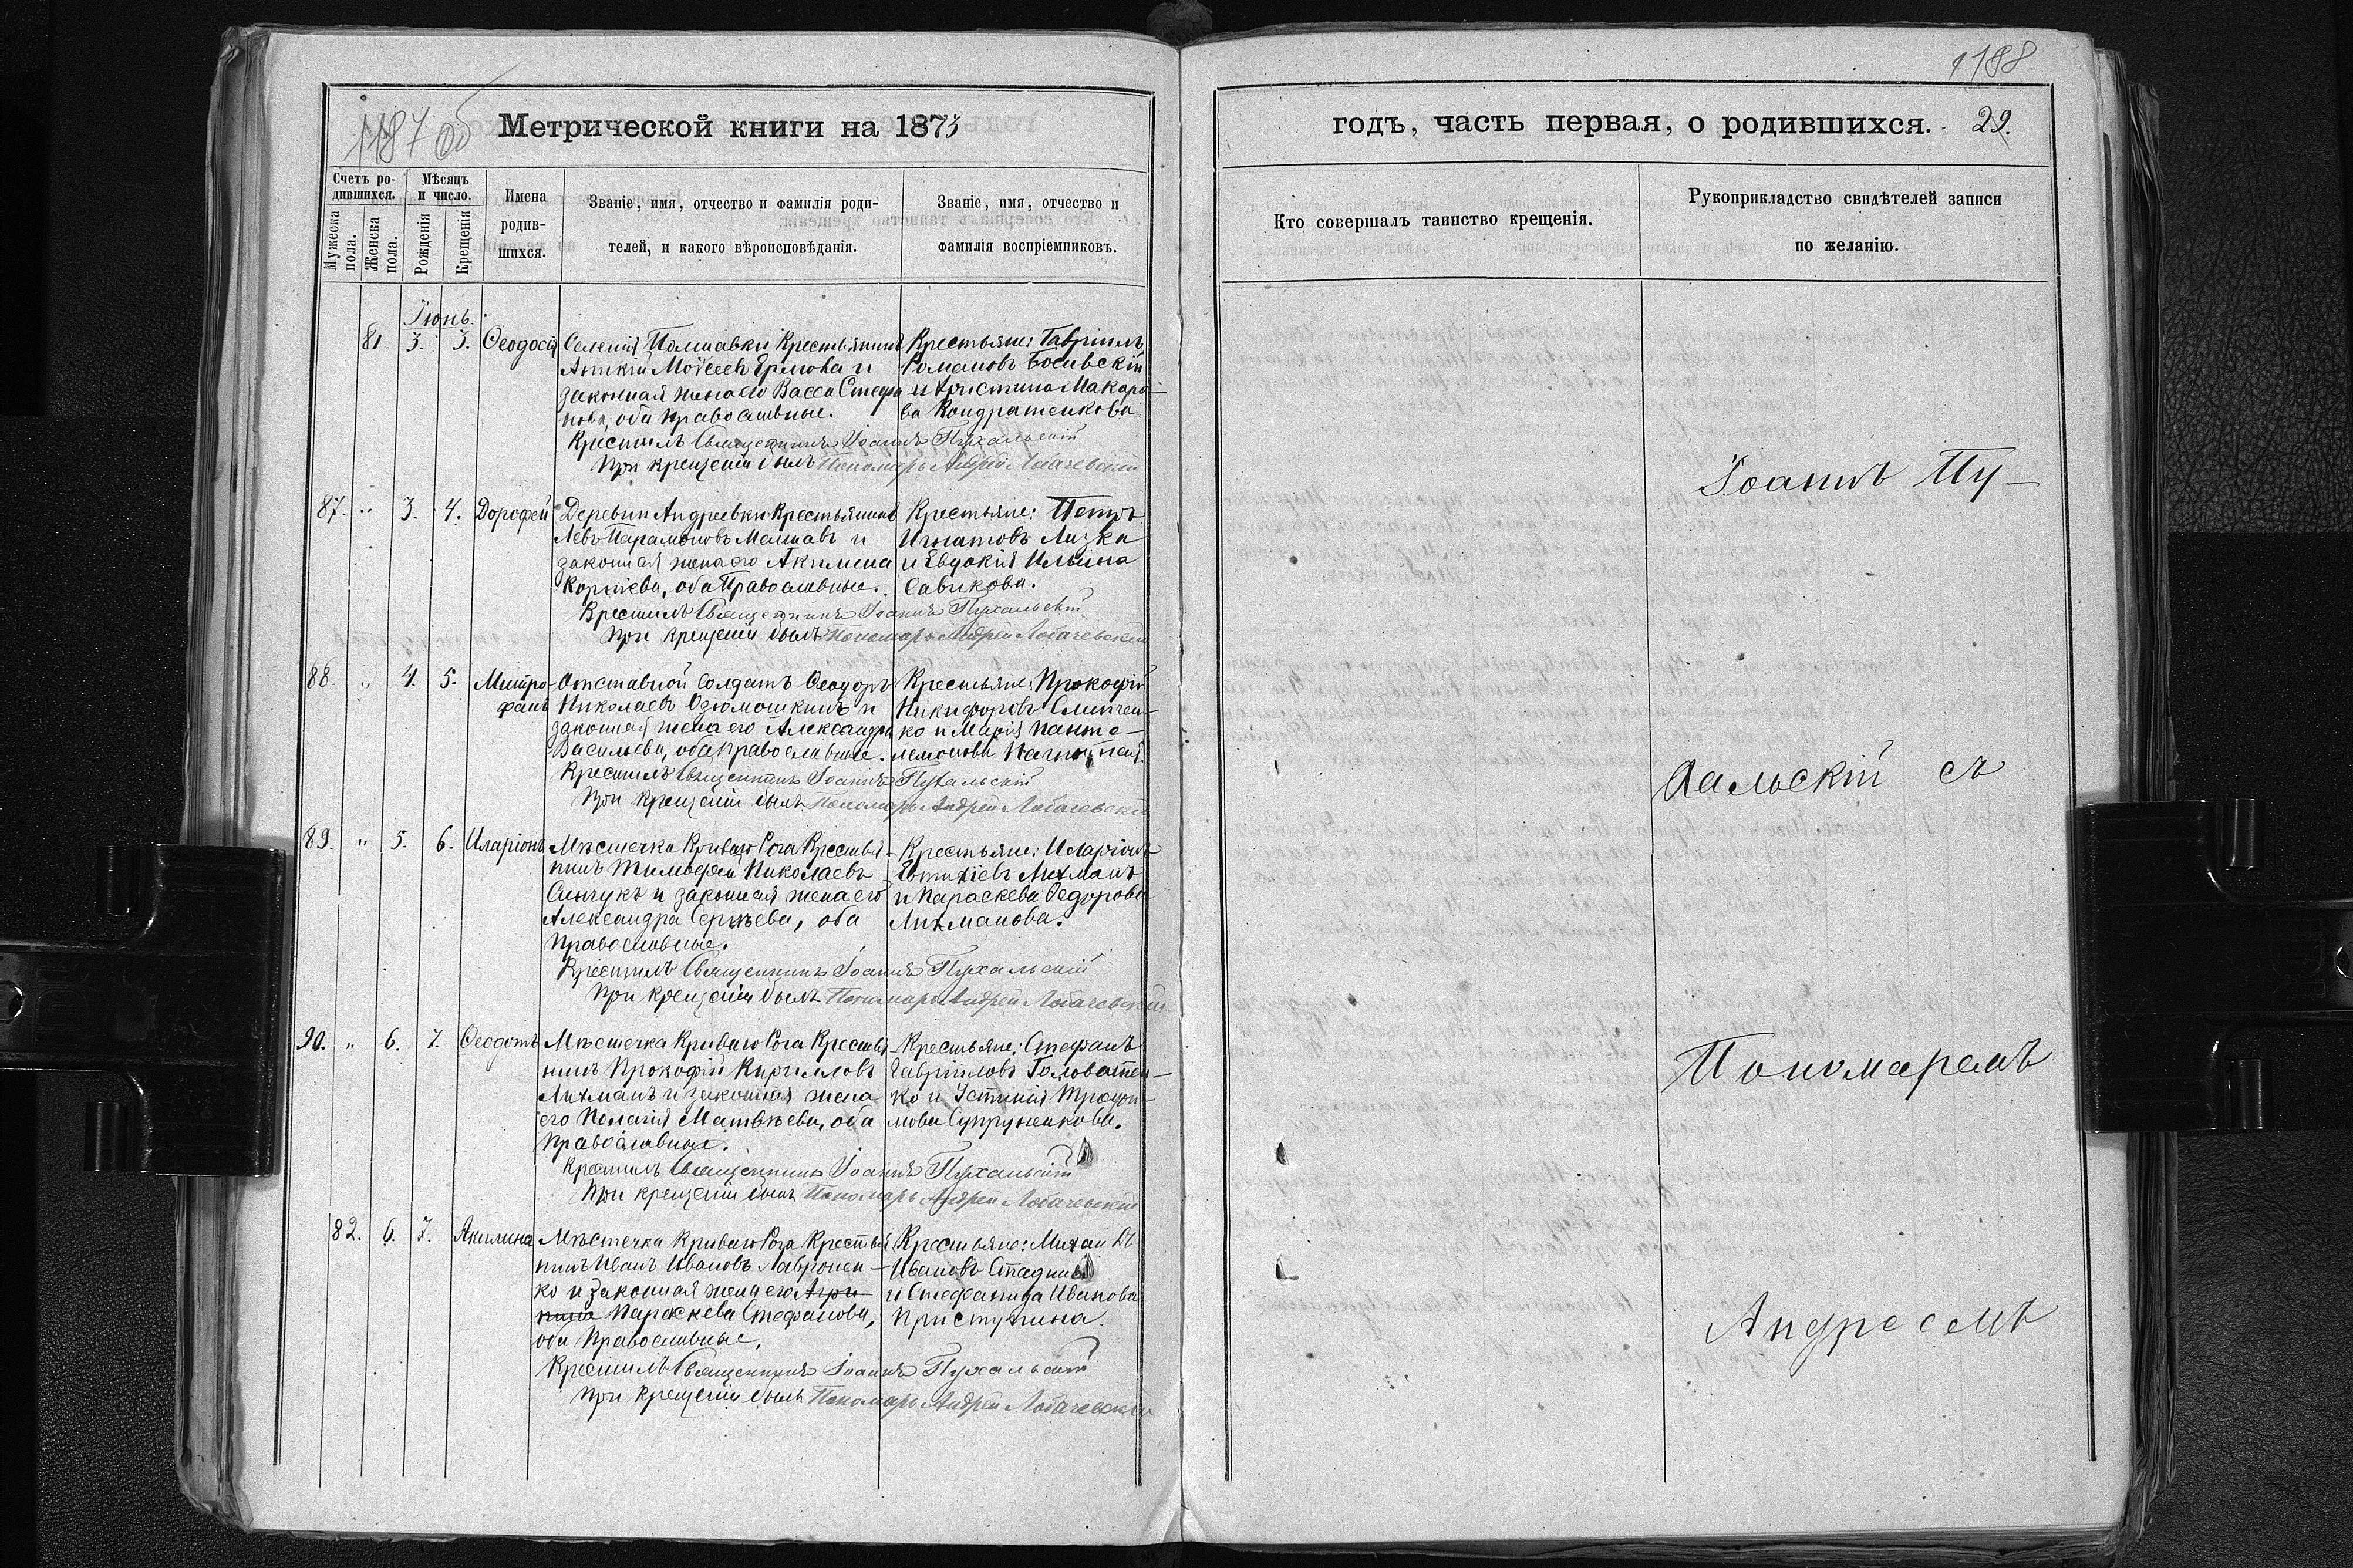 1187 об
Метрической книги на 1873
Счетъ ро-
дившихся.
Мужеска пола.
Женска пола.
Мѣсяцъ
и число.
Рожденія
Крещенія
Имена
родив-
шихся.
Званіе, имя, отчество и фамилія роди-
телей, и какого вѣроисповѣданія.
Званіе, имя, отчество и
фамилія воспріемниковъ.
Іюнь.
81. 3. 3. Ѳеодосія
Крестьянинъ
Моѵсеевъ и
законная жена его Васса Стефа
нова, оба православные.
Крестьяне: Гавріилъ
Романовъ
и Христина Макаро-
ва Кондратенкова.
Крестилъ Священникъ Іоаннъ Пухальскій
При крещеніи былъ Пономарь Андрей Лобачевскій
87. " 3. 4. Дорофей
Деревни Андреевки Крестьянинъ
Левъ Парамоновъ и
законная жена его Акилина
оба Православные.
Крестьяне: Петръ
Игнатовъ Лизка
и Евдокія Ильина
Савикова.
Крестилъ Священникъ Іоаннъ Пухальскій
При крещеніи былъ Пономарь Андрей Лобачевскій
88. " 4. 5. Митро-
фанъ
Отставной солдатъ Ѳеодоръ
Николаевъ и
законная жена его Александра
Васильева, оба православные.
Крестьяне: Прокофій
Никифоровъ
ко и Марія Панте-
леимонова
Крестилъ Священникъ Іоаннъ Пухальскій
При крещеніи былъ Пономарь Андрей Лобачевскій
89. " 5. 6. Иларіонъ
Мѣстечка Криваго Рога Крестья-
нинъ Тимофей Николаевъ
и законная жена его
Александра Сергѣева, оба
Православные.
Крестьяне: Иларіонъ
Евтихіевъ Лихманъ
и Параскева Ѳедорова
Лихманова.
Крестилъ Священникъ Іоаннъ Пухальскій
При крещеніи былъ Пономарь Андрей Лобачевскій
90. " 6. 7. Ѳеодотъ
Мѣстечка Криваго Рога Крестья-
нинъ Прокофій Кирилловъ
Лихманъ и законная жена
его Пелагія Матвѣева, оба
Православные.
Крестьяне: Стефанъ
Гавріиловъ Головатен-
ко и Устинія Трофи-
мова Супруненкова.
Крестилъ Священникъ Іоаннъ Пухальскій
При крещеніи былъ Пономарь Андрей Лобачевскій
82. 6. 7. Акилина
Мѣстечка Криваго Рога Крестья
нинъ Иванъ Ивановъ Лавронен-
ко и законная жена его Агри-
пина Параскева Стефанова,
оба Православные.
Крестьяне: Михаилъ
Ивановъ
и Стефанида Иванова
Приступина.
Крестилъ Священникъ Іоаннъ Пухальскій
При крещеніи былъ Пономарь Андрей Лобачевскій
1188
годъ, часть первая, о родившихся. 29.
Кто совершалъ таинство крещенія.
Рукоприкладство свидѣтелей записи
по желанію.
Іоаннъ Пу-
хальскій съ
Пономаремъ
Андреемъ